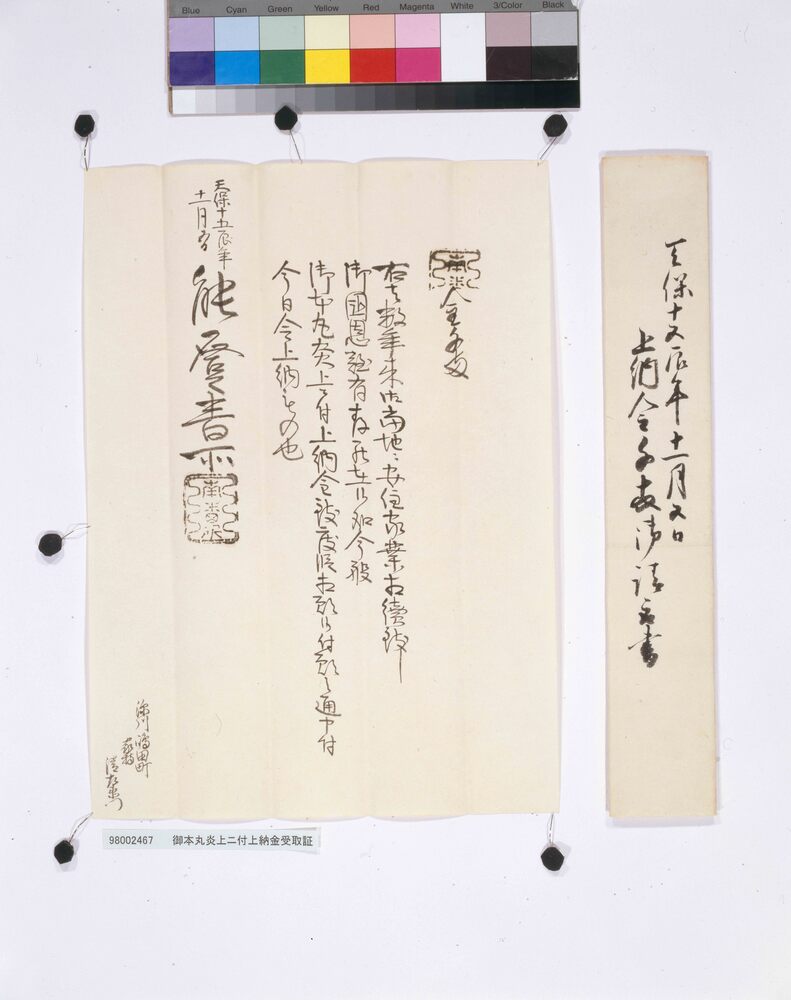 Blue Cyan Green Yellow Red Magenta White 3/Color Black
天保十五辰年十一月五日
上納金千両御請取書
金千両
右者数年来御当地ニ安住家業相続致し
御国恩難有奉存罷在候処今般
御本丸炎上ニ付上納金致度段相願候付願之通申付
今日令上納もの也
天保十五辰年
十一月五日
能登書所
深川嶋田町
家持
清左衛門
98002467 御本丸炎上ニ付上納金受取証